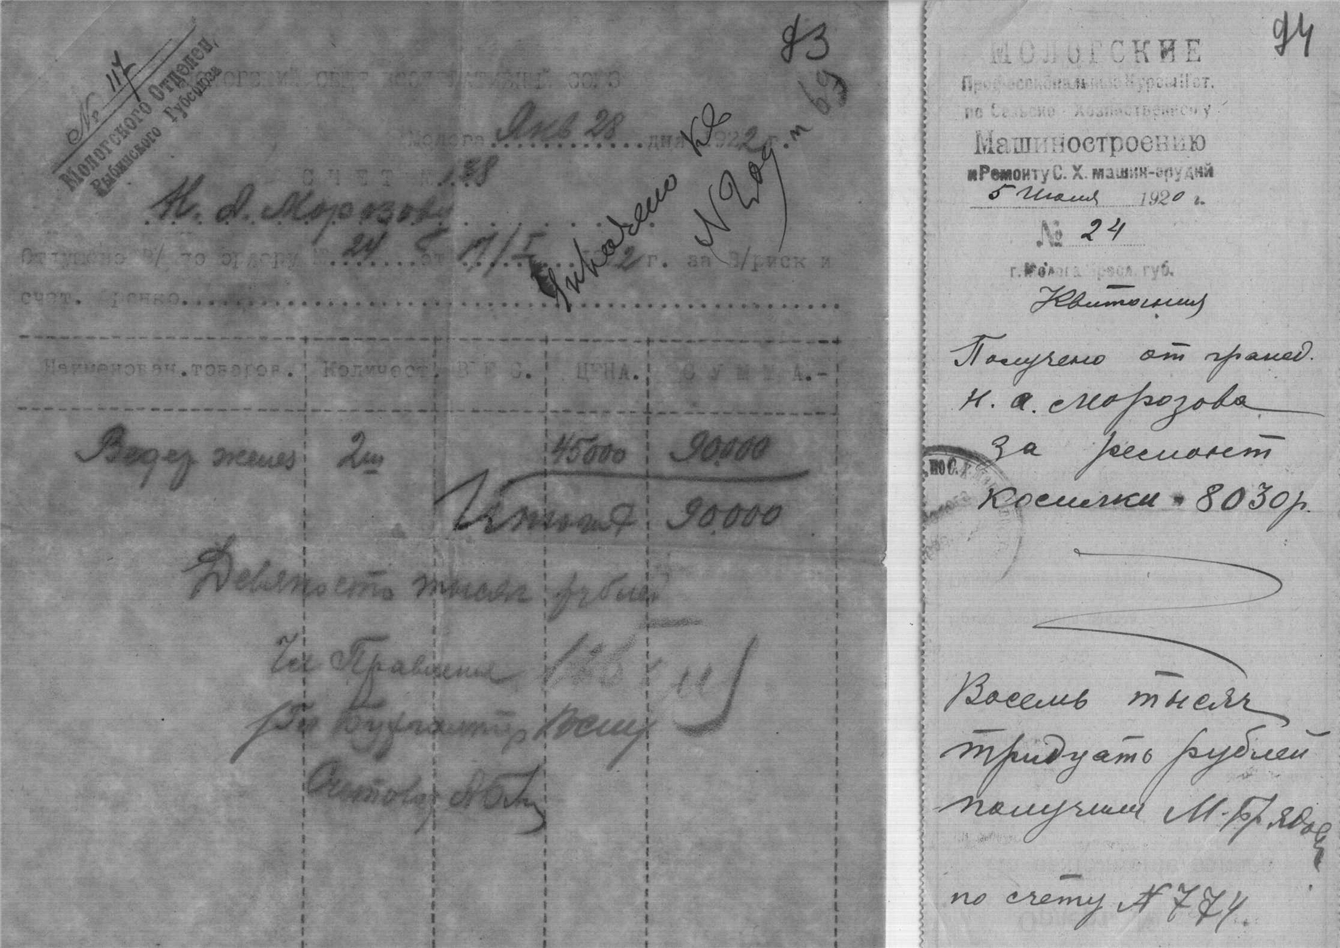 93
№ 117
Мологского Отделен.
Рыбинского Губсоюза
Молога Янв 28 дня 1922 г.
п 69
СЧЕТ № 138
Н. А. Морозову
Отпущено В/ по ордеру № 24 от 17/I 1922 г. за В/риск и
счет. ранко
Наименован.товаров. Количест. ВЕС. ЦЕНА. СУММА.-
Ведер желез 2 шт 45000 90.000
Итого 90.000
Девяносто тысяч рублей
Чл Правления
Бухгалтер
Счетовод
94
МОЛОГСКИЕ
Профессиональные Курсы Инст.
по Сельско-Хозяйственному
Машиностроению
и Ремонту С. Х. машин-орудий
5 Июля 1920 г.
№ 24
г. Молога Яросл. губ.
Квитанция
Получено от гражд.
Н. А. Морозова
за ремонт
косилки - 8030 р.
Восемь тысяч
тридцать рублей
получил М. Брядов
по счету № 774.